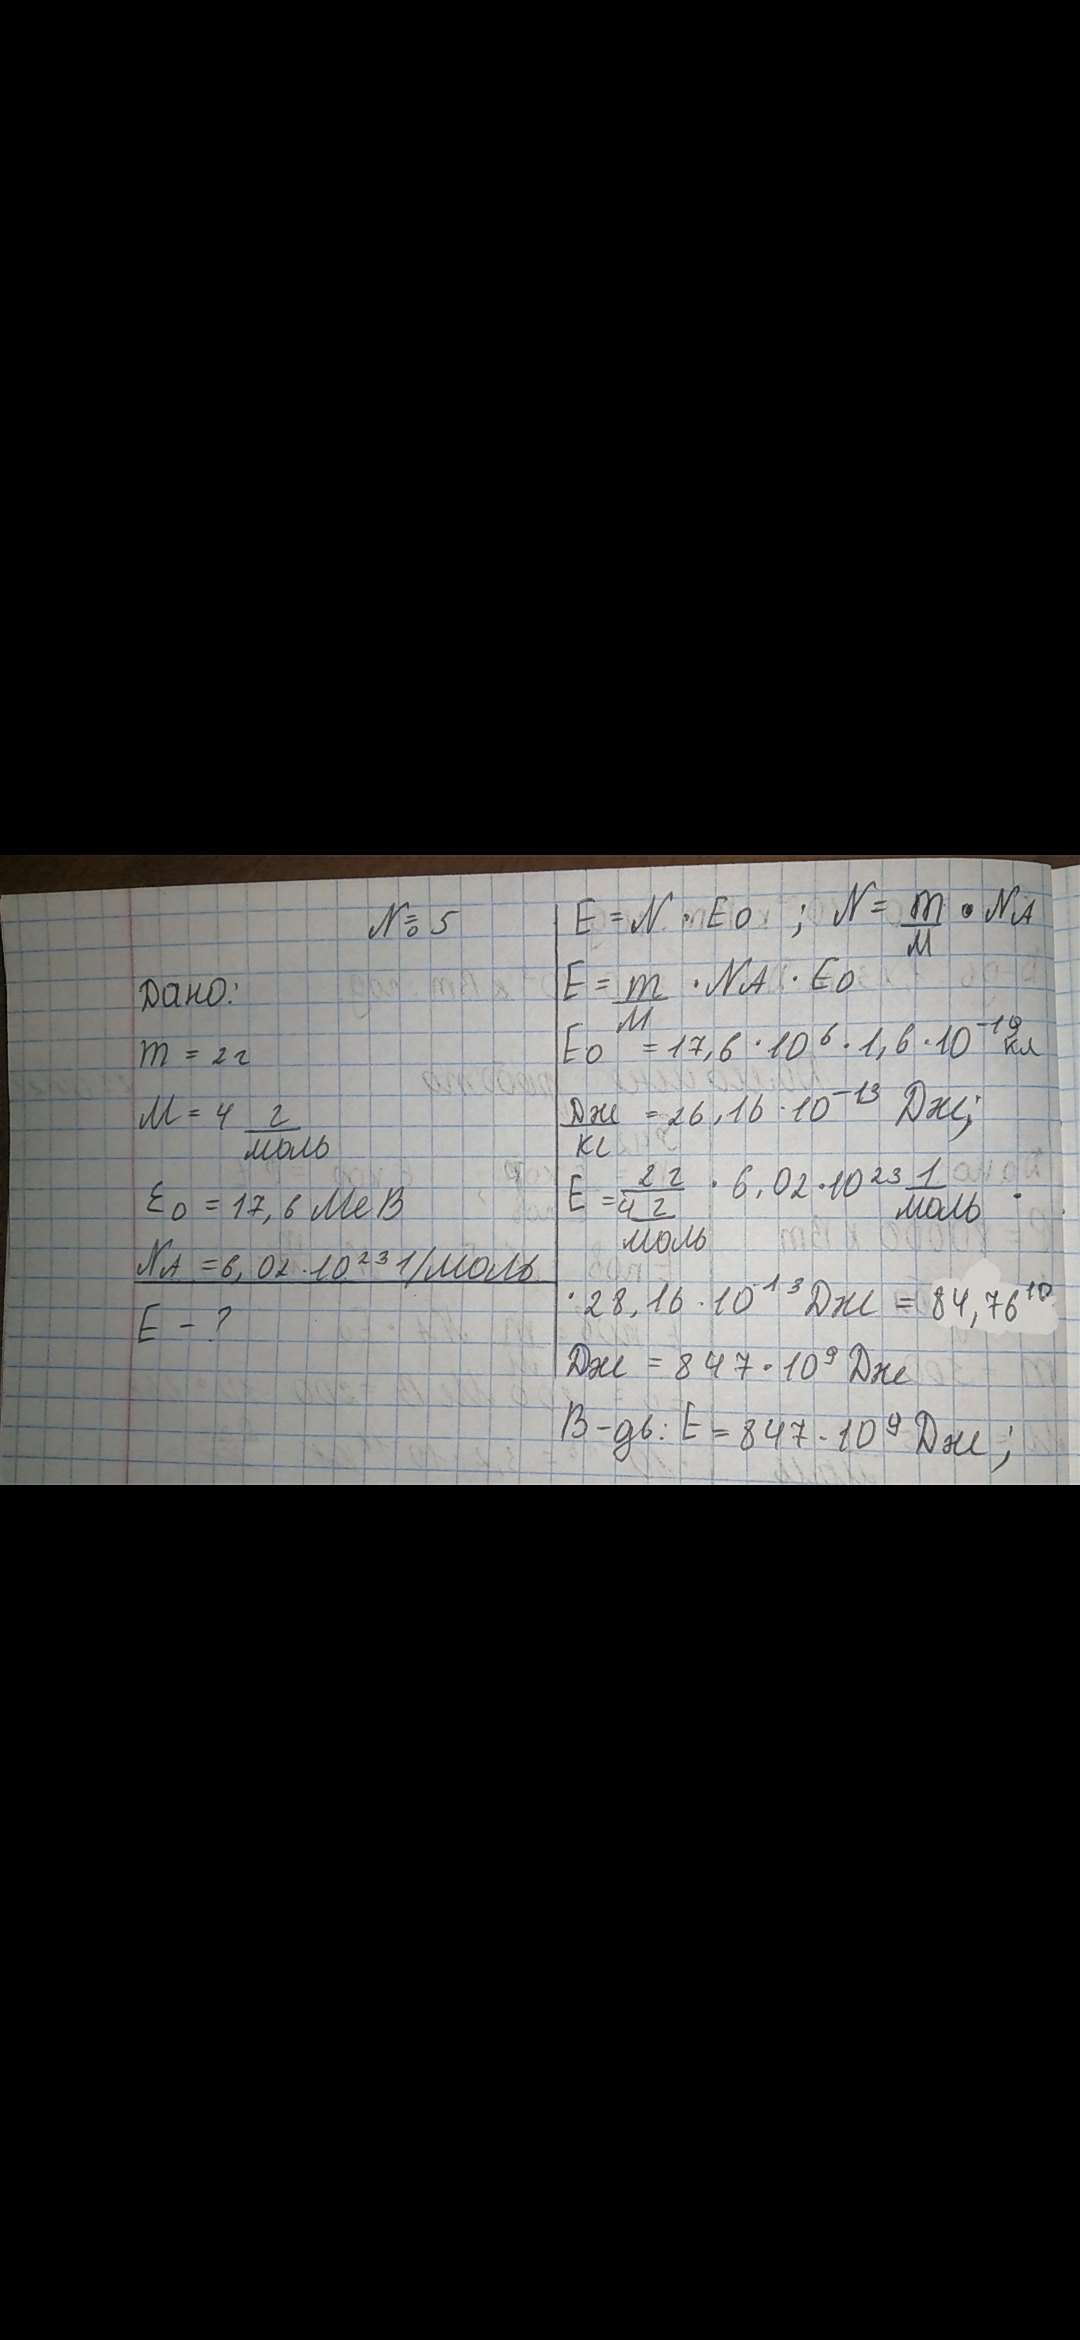 № 5
Дано:
m = 2 г
M = 4 г/моль
E0 = 17,6 МеВ
NA = 6,02 · 10²³ 1/моль
E - ?
E = N · E0 ; N = m/M · NA
E = m/M · NA · E0
E0 = 17,6 · 10⁶ · 1,6 · 10⁻¹⁹ Кл
Дж/Кл = 26,16 · 10⁻¹³ Дж;
E = 2 г / 4 г/моль · 6,02 · 10²³ 1/моль ·
· 28,16 · 10⁻¹³ Дж = 84,76¹⁰
Дж = 847 · 10⁹ Дж
В-дь: E = 847 · 10⁹ Дж;